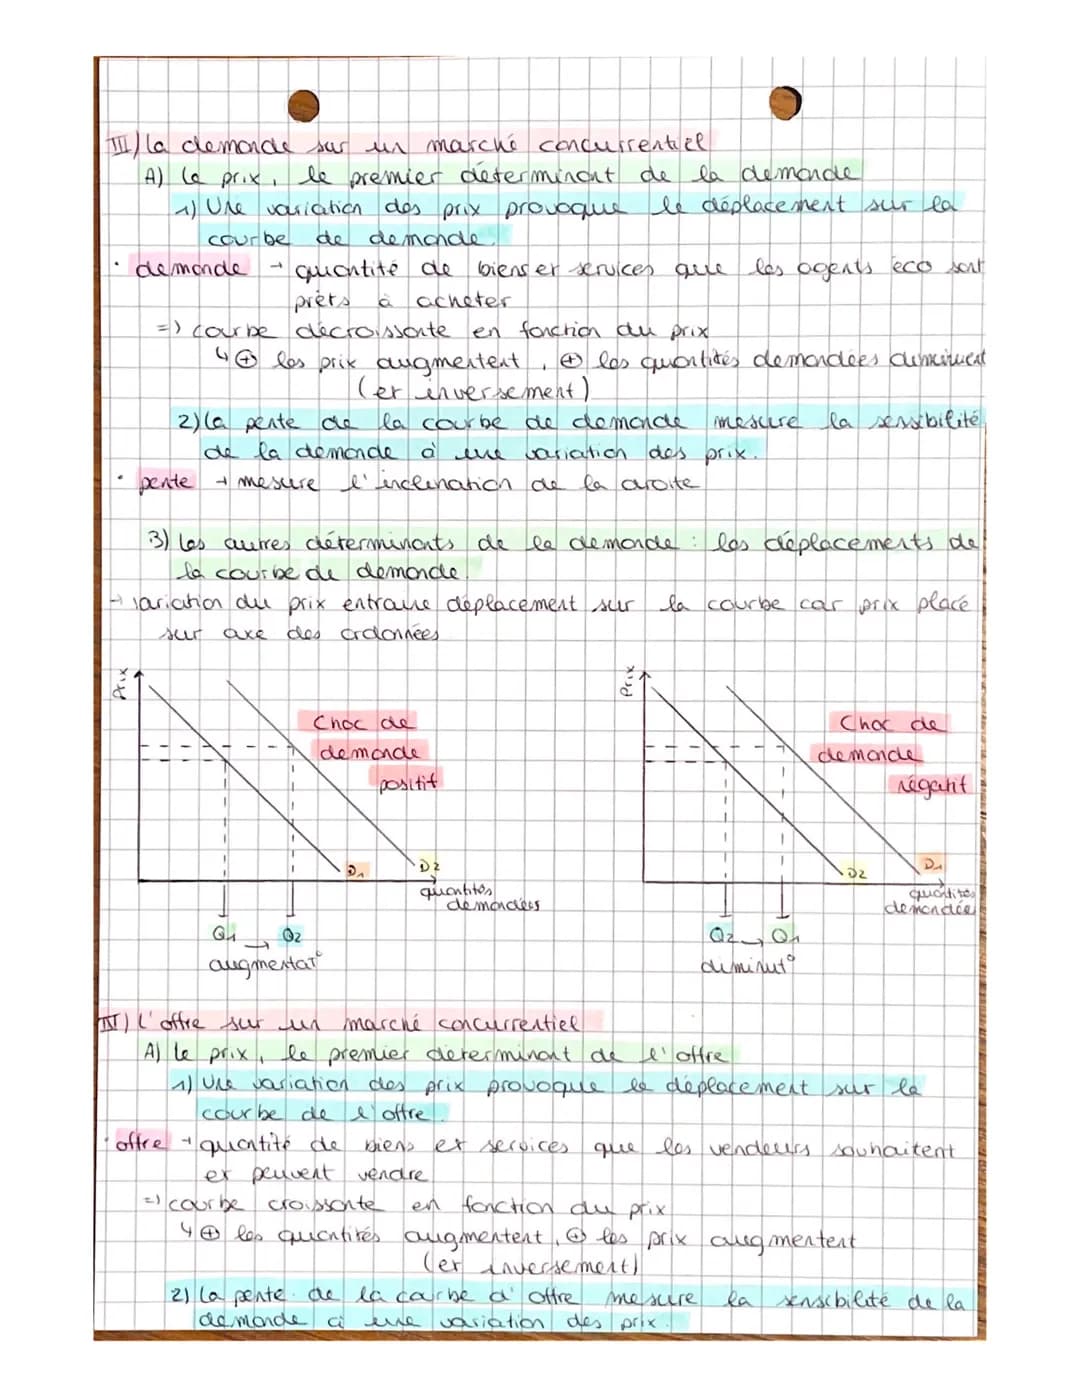 III) La demande sur un marché concurrentiel
A) Le prix, le premier déterminant de la demande
1) Une variation des prix provoque le déplacement sur la
courbe de demande.
· demande → quantité de biens et services que les agents éco sont
prêts à acheter
=> courbe décroissante en fonction du prix
↳ ⊕ les prix augmentent, ⊕ les quantités demandées diminuent
(et inversement)
2) La pente de la courbe de demande mesure la sensibilité
de la demande à une variation des prix.
· pente → mesure l'inclination de la droite
3) Les autres déterminants de la demande : les déplacements de
la courbe de demande.
→ variation du prix entraine déplacement sur la courbe car prix placé
sur axe des ordonnées
Prix
Choc de
demande
positif
D1
D2
quantités
demandées
Q1 → Q2
augmentat°
Prix
Choc de
demande
négatif
D2
D1
quantités
demandées
Q2 → Q1
diminut°
IV) L'offre sur un marché concurrentiel
A) Le prix, le premier déterminant de l'offre
1) Une variation des prix provoque le déplacement sur la
courbe de l'offre.
· offre → quantité de biens et services que les vendeurs souhaitent
et peuvent vendre
=> courbe croissante en fonction du prix
↳ ⊕ les quantités augmentent, ⊕ les prix augmentent
(et inversement)
2) La pente de la courbe d'offre mesure la sensibilité de la
demande à une variation des prix.